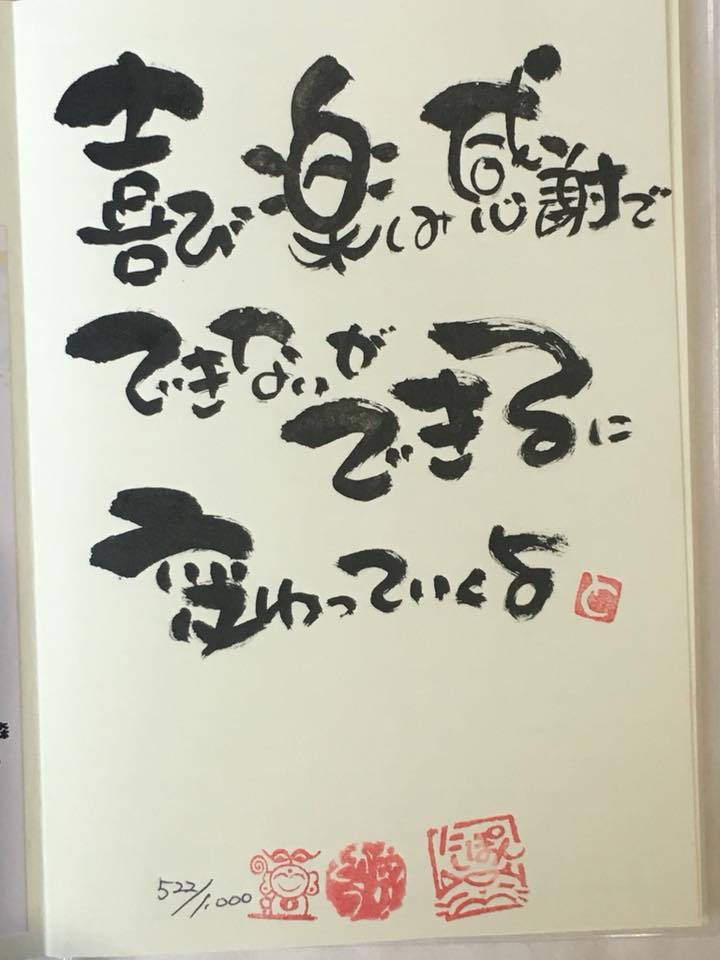 喜び楽しみ感謝で
できないが
できるに
変わっていくよ
と
522/1,000
にっぽん